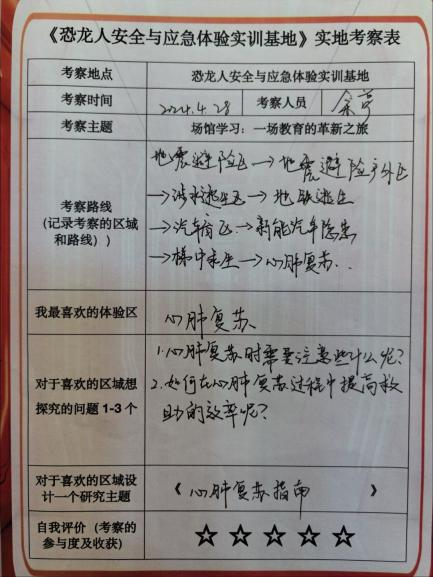 《恐龙人安全与应急体验实训基地》实地考察表
考察地点 恐龙人安全与应急体验实训基地
考察时间 2024.4.28 考察人员
考察主题 场馆学习：一场教育的革新之旅
考察路线
(记录考察的区域
和路线））
地震避险区→地震避险户外区
→涉水逃生区→地铁逃生
→汽车商区→新能汽车隐患
→梯中求生→心肺复苏..
我最喜欢的体验区 心肺复苏
对于喜欢的区域想
探究的问题 1-3 个
1.心肺复苏时需要注意些什么呢?
2.如何在心肺复苏过程中提高救
助的效率呢?
对于喜欢的区域设
计一个研究主题
《 心肺复苏指南 》
自我评价（考察的
参与度及收获）
☆ ☆ ☆ ☆ ☆